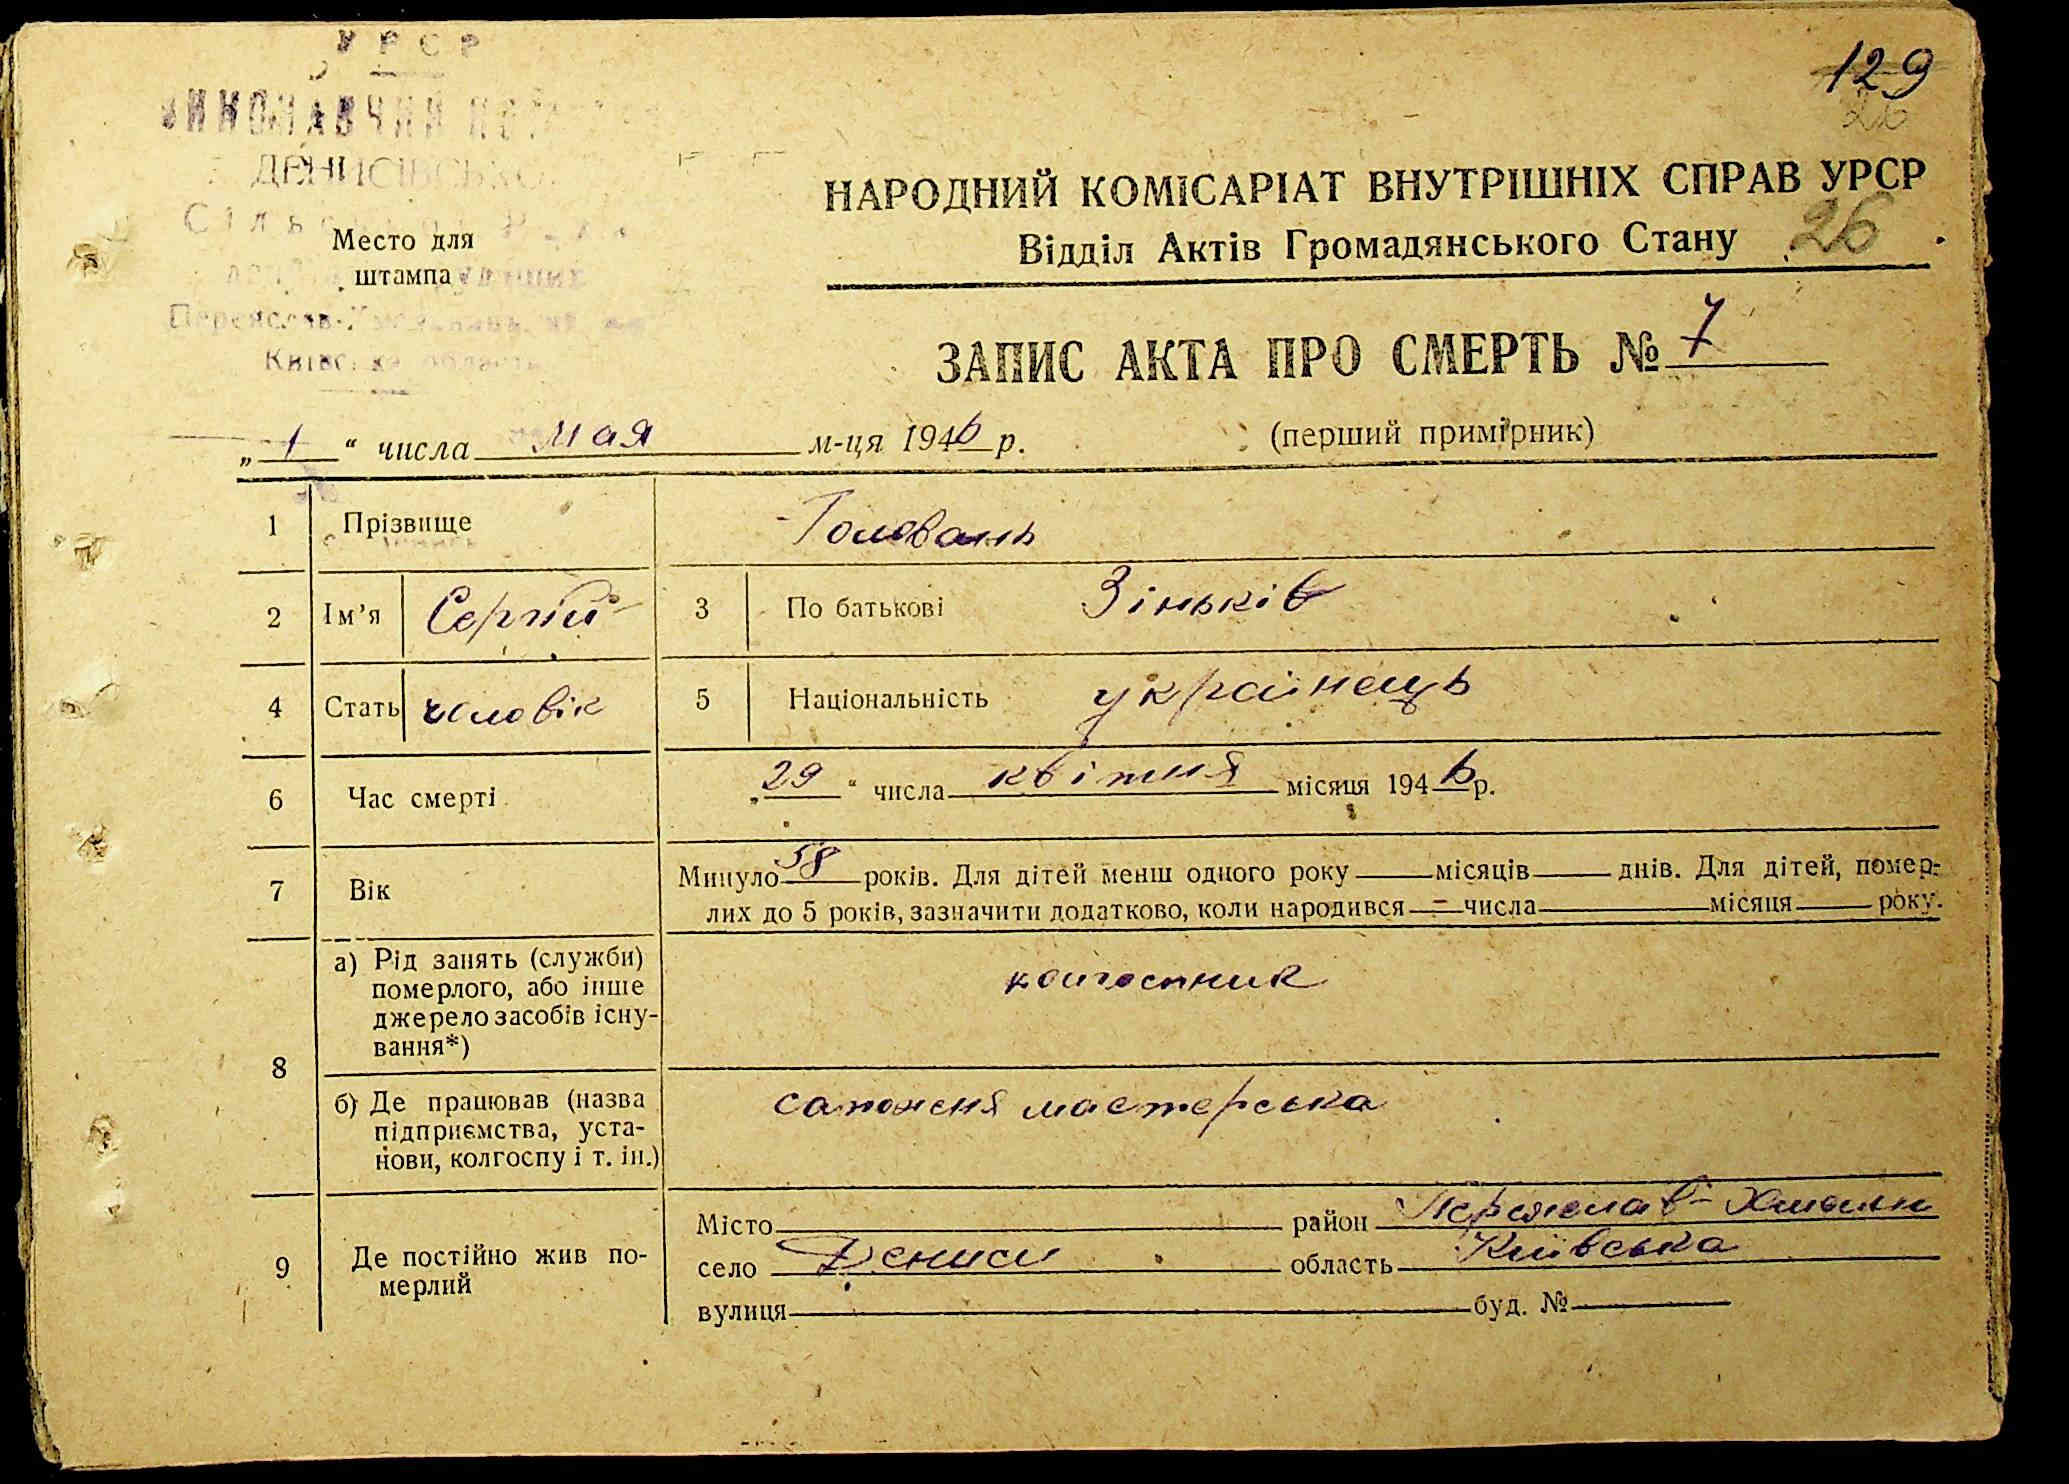 УРСР
129
26
ДЕНИСІВСЬКО
НАРОДНИЙ КОМІСАРІАТ ВНУТРІШНІХ СПРАВ УРСР
Відділ Актів Громадянського Стану 26
Место для
штампа
ЗАПИС АКТА ПРО СМЕРТЬ № 7
„1“ числа мая м-ця 1946 р. (перший примірник)
1 Прізвище Головань
2 Ім'я Сергій 3 По батькові Зіньків
4 Стать чоловік 5 Національність українець
6 Час смерті „29“ числа квітня місяця 1946 р.
7 Вік Минуло 58 років. Для дітей менш одного року місяців днів. Для дітей, помер-
лих до 5 років, зазначити додатково, коли народився – числа місяця року.
8 а) Рід занять (служби) померлого, або інше джерело засобів існування*) колгоспник
б) Де працював (назва підприємства, установи, колгоспу і т. ін.) сапожня мастерська
9 Де постійно жив померлий
Місто район Переяслав-Хмельн
село Дениси область Київська
вулиця буд. №